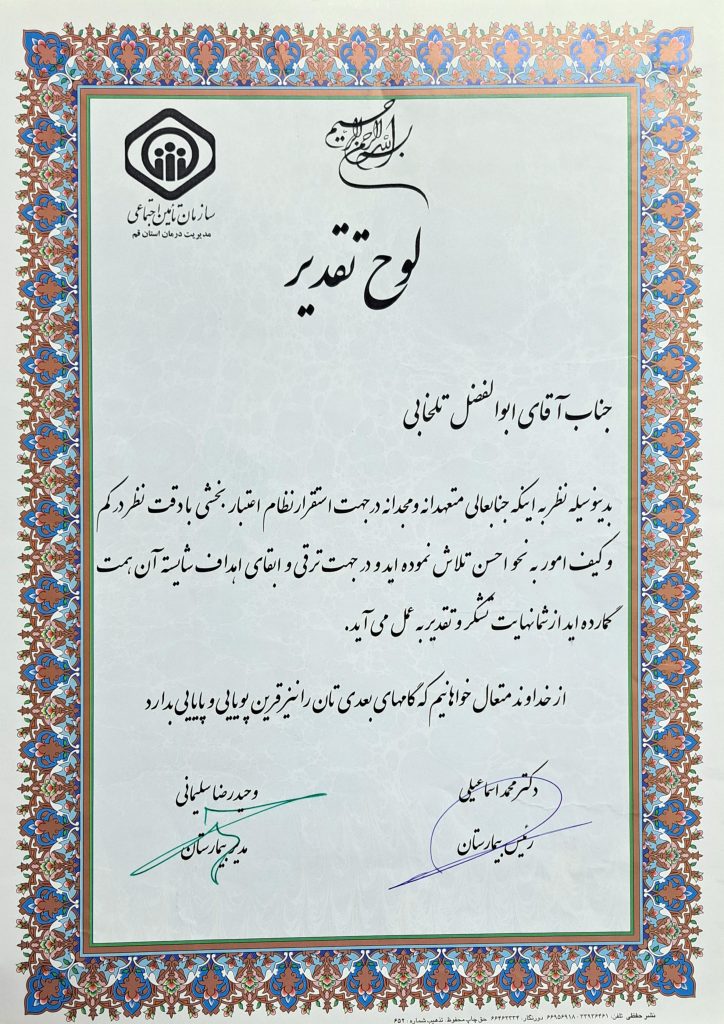 بسم الله الرحمن الرحیم
سازمان تأمین اجتماعی
مدیریت درمان استان قم
لوح تقدیر
جناب آقای ابوالفضل تلخابی
بدینوسیله نظر به اینکه جنابعالی متعهدانه و مجدانه در جهت استقرار نظام اعتبار بخشی با دقت نظر در کم
و کیف امور به نحو احسن تلاش نموده اید و در جهت ترقی و ابقای اهداف شایسته آن همت
گمارده اید از شما نهایت تشکر و تقدیر به عمل می آید.
از خداوند متعال خواهانیم که گامهای بعدی تان را نیز قرین پویایی و پایایی بدارد
دکتر محمد اسماعیلی
رئیس بیمارستان
وحید رضا سلیمانی
مدیر بیمارستان
نشر حفظی تلفن: ۳۳۹۳۶۴۶۱ - ۶۶۹۵۶۹۱۸ دورنگار: ۶۶۴۶۲۳۳۴ حق چاپ محفوظ. تذهیب شماره: ۶۵۲